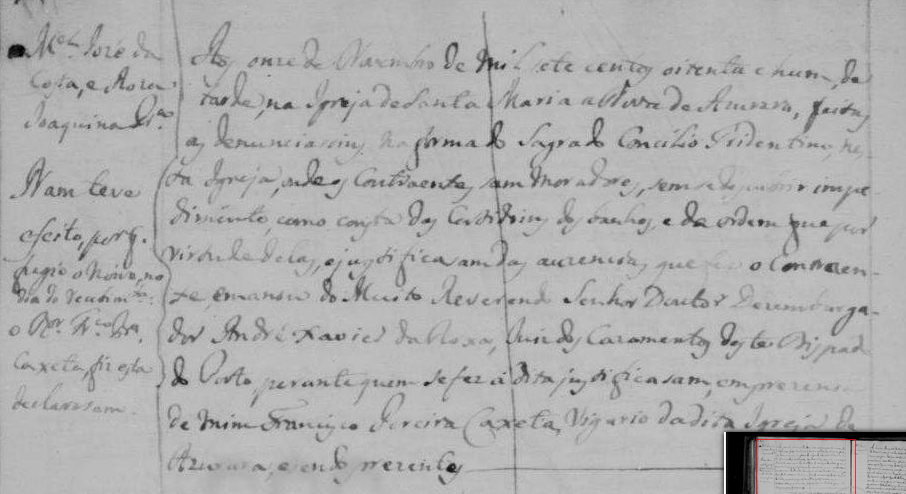 M.el Jozé da
Costa, e Roza
Joaquina
Nam teve
efeito, porq.
fugio o Noivo, no
dia do
o R.or Fr.co Pr.a
Caxeta, fiz esta
declarasam.
Aos onze de Novembro de mil sete centos oitenta e hum, de
tarde, na Igreja de Santa Maria a Nova de Azurara, feitas
as denunciacins na forma do Sagrado Concilio Tridentino, nes-
ta Igreja, onde os Contraentes sam moradores, sem se descubrir impe-
dimento, como consta das Certidoins dos banhos, e da ordem que por
virtude delas, e justificasam das auzencias que fez o Contraen-
te, emanou do Muito Reverendo Senhor Doutor Dezembarga-
dor André Xavier da Roxa, Juiz dos Cazamentos deste Bispado
do Porto, perante quem se fez a dita justificasam, em prezensa
de mim Francisco Pereira Caxeta, Vigario da dita Igreja de
Azurara, e sendo prezentes